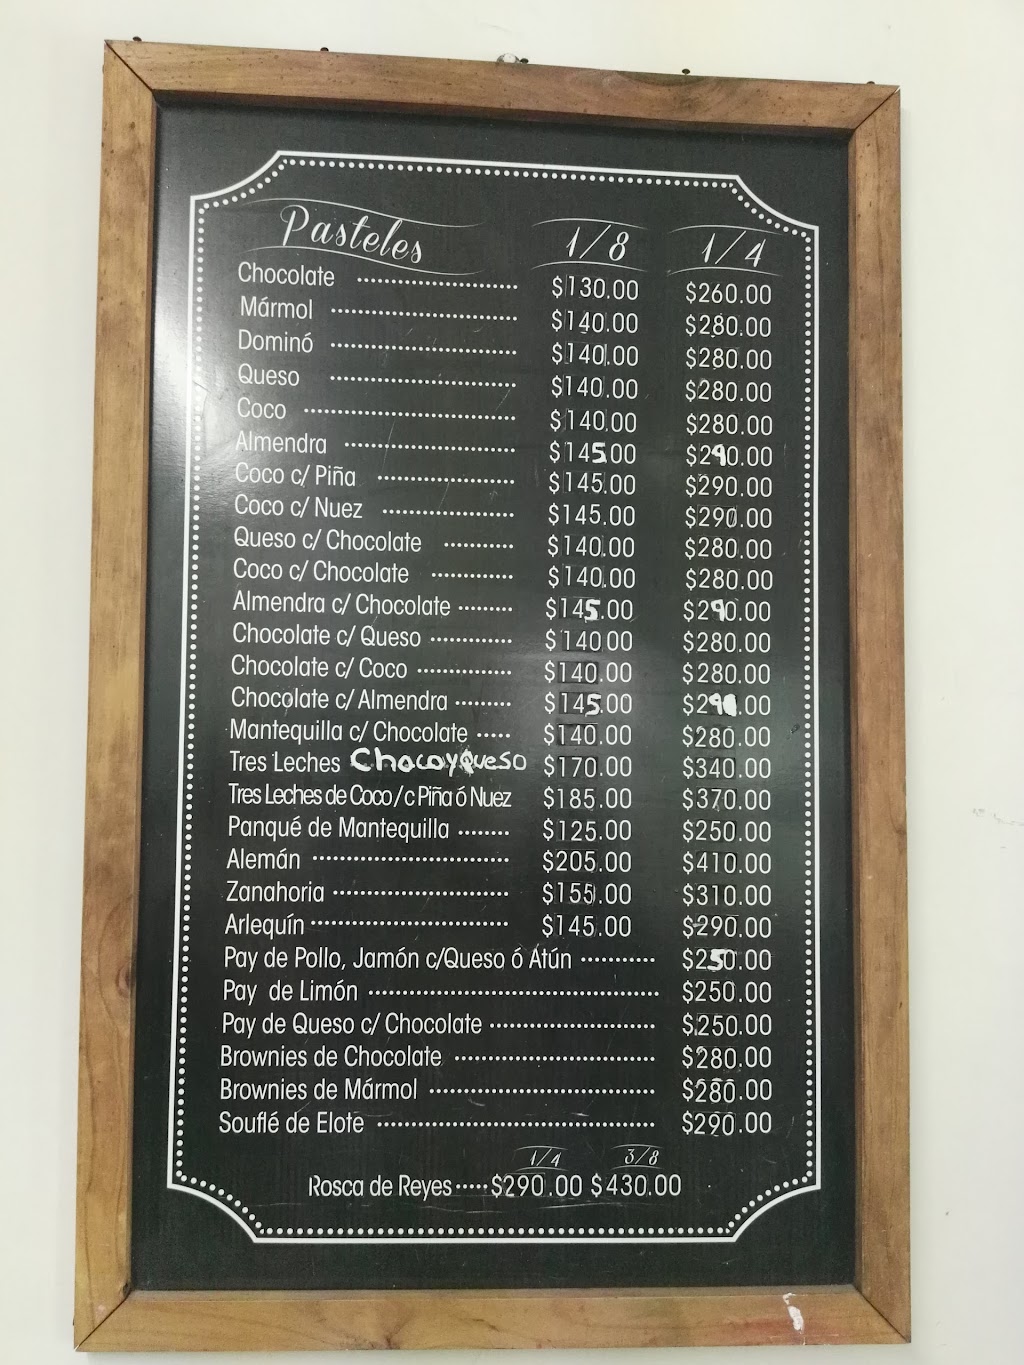 Pasteles 1/8 1/4
Chocolate ..................... $130.00 $260.00
Mármol ........................ $140.00 $280.00
Dominó ........................ $140.00 $280.00
Queso ........................ $140.00 $280.00
Coco ........................... $140.00 $280.00
Almendra ...................... $145.00 $290.00
Coco c/ Piña .................. $145.00 $290.00
Coco c/ Nuez ................. $145.00 $290.00
Queso c/ Chocolate ......... $140.00 $280.00
Coco c/ Chocolate .......... $140.00 $280.00
Almendra c/ Chocolate ....... $145.00 $290.00
Chocolate c/ Queso ........... $140.00 $280.00
Chocolate c/ Coco ............ $140.00 $280.00
Chocolate c/ Almendra ....... $145.00 $290.00
Mantequilla c/ Chocolate ..... $140.00 $280.00
Tres Leches Choco y queso $170.00 $340.00
Tres Leches de Coco/c Piña ó Nuez $185.00 $370.00
Panqué de Mantequilla ....... $125.00 $250.00
Alemán .......................... $205.00 $410.00
Zanahoria ....................... $155.00 $310.00
Arlequín .......................... $145.00 $290.00
Pay de Pollo, Jamón c/Queso ó Atún .......... $250.00
Pay de Limón ...................................... $250.00
Pay de Queso c/ Chocolate ...................... $250.00
Brownies de Chocolate .......................... $280.00
Brownies de Mármol ............................. $280.00
Souflé de Elote .................................... $290.00
1/4 3/8
Rosca de Reyes ..... $290.00 $430.00